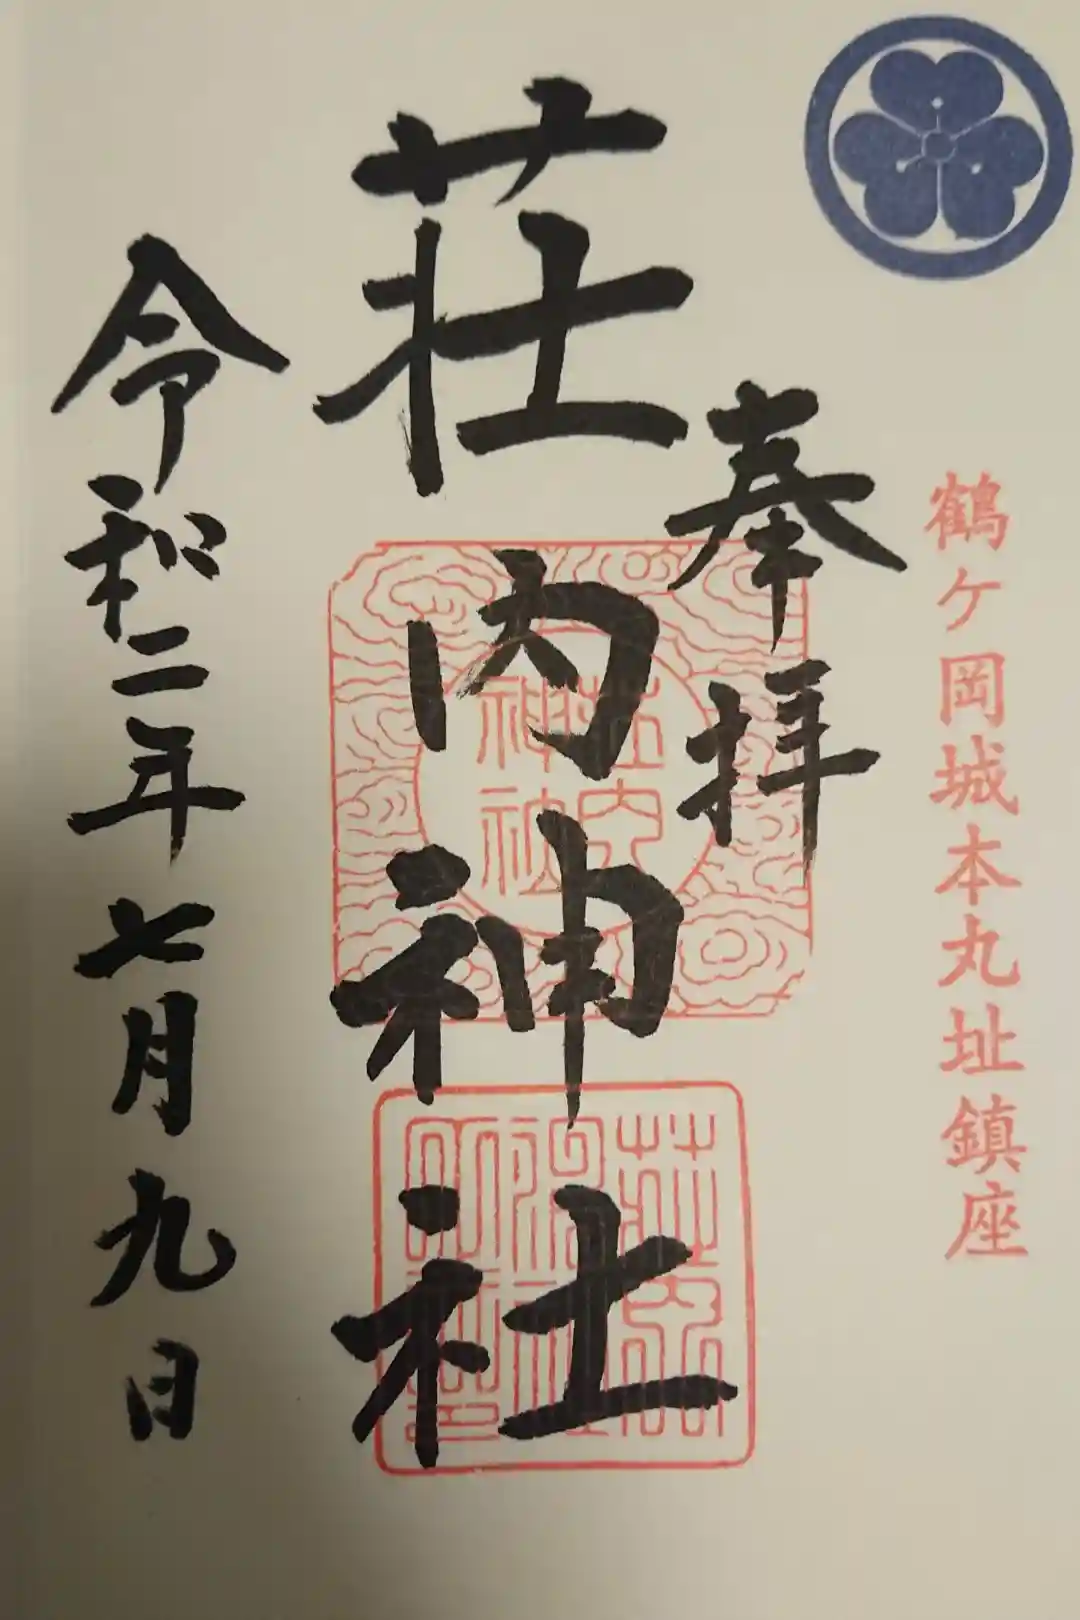 鶴ケ岡城本丸址鎮座
奉拝
荘内神社
荘内
神社
令和二年七月九日